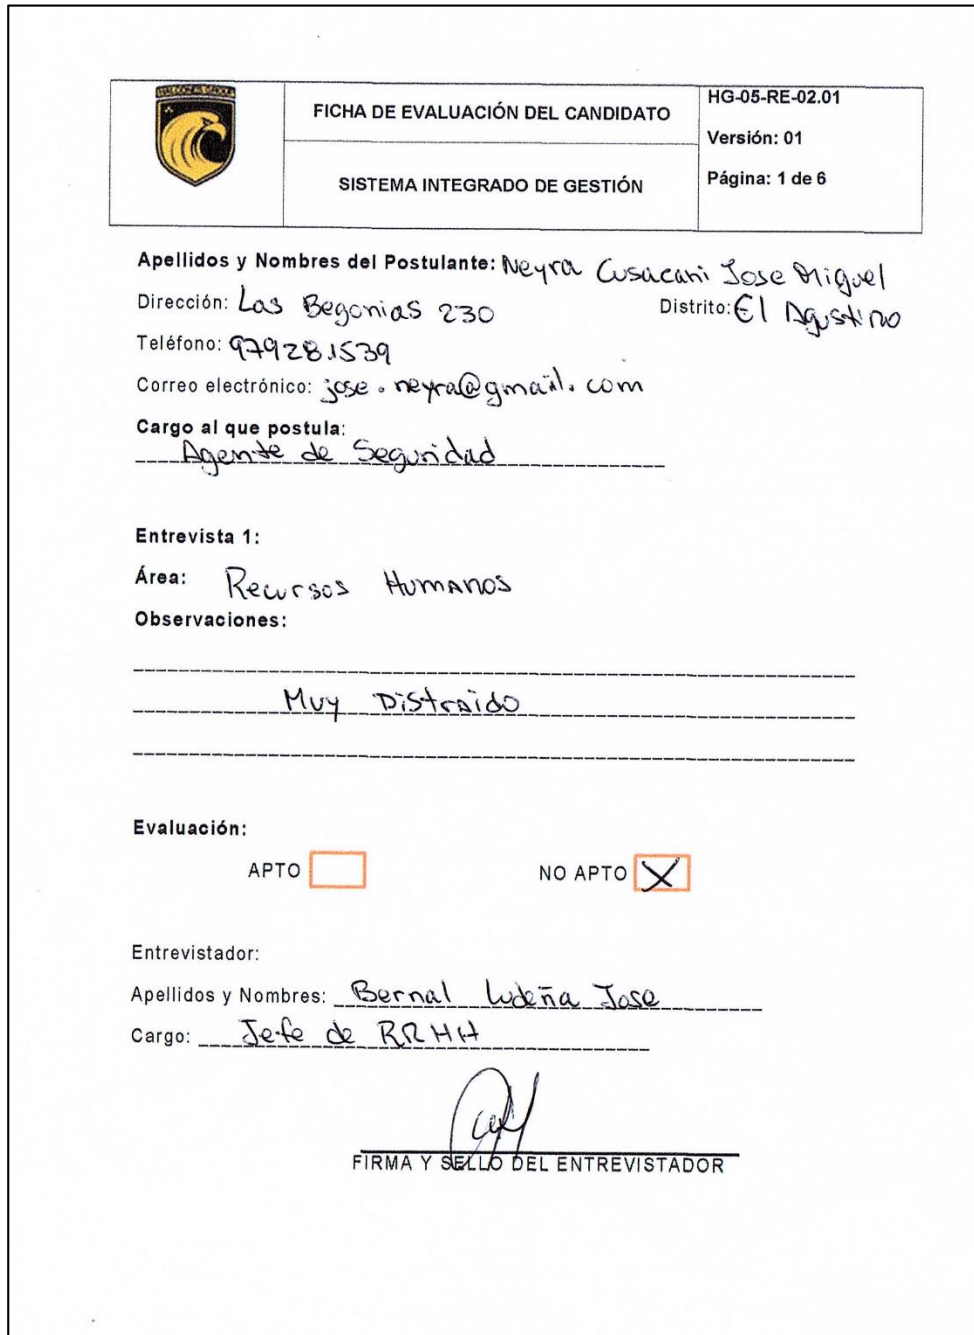 FICHA DE EVALUACIÓN DEL CANDIDATO
SISTEMA INTEGRADO DE GESTIÓN
HG-05-RE-02.01
Versión: 01
Página: 1 de 6
Apellidos y Nombres del Postulante: Neyra Cusacani Jose Miguel
Dirección: Las Begonias 230 Distrito: El Agustino
Teléfono: 979281539
Correo electrónico: jose.neyra@gmail.com
Cargo al que postula:
Agente de Seguridad
Entrevista 1:
Área: Recursos Humanos
Observaciones:
Muy Distraido
Evaluación:
APTO NO APTO X
Entrevistador:
Apellidos y Nombres: Bernal Ludeña Jose
Cargo: Jefe de RRHH
FIRMA Y SELLO DEL ENTREVISTADOR